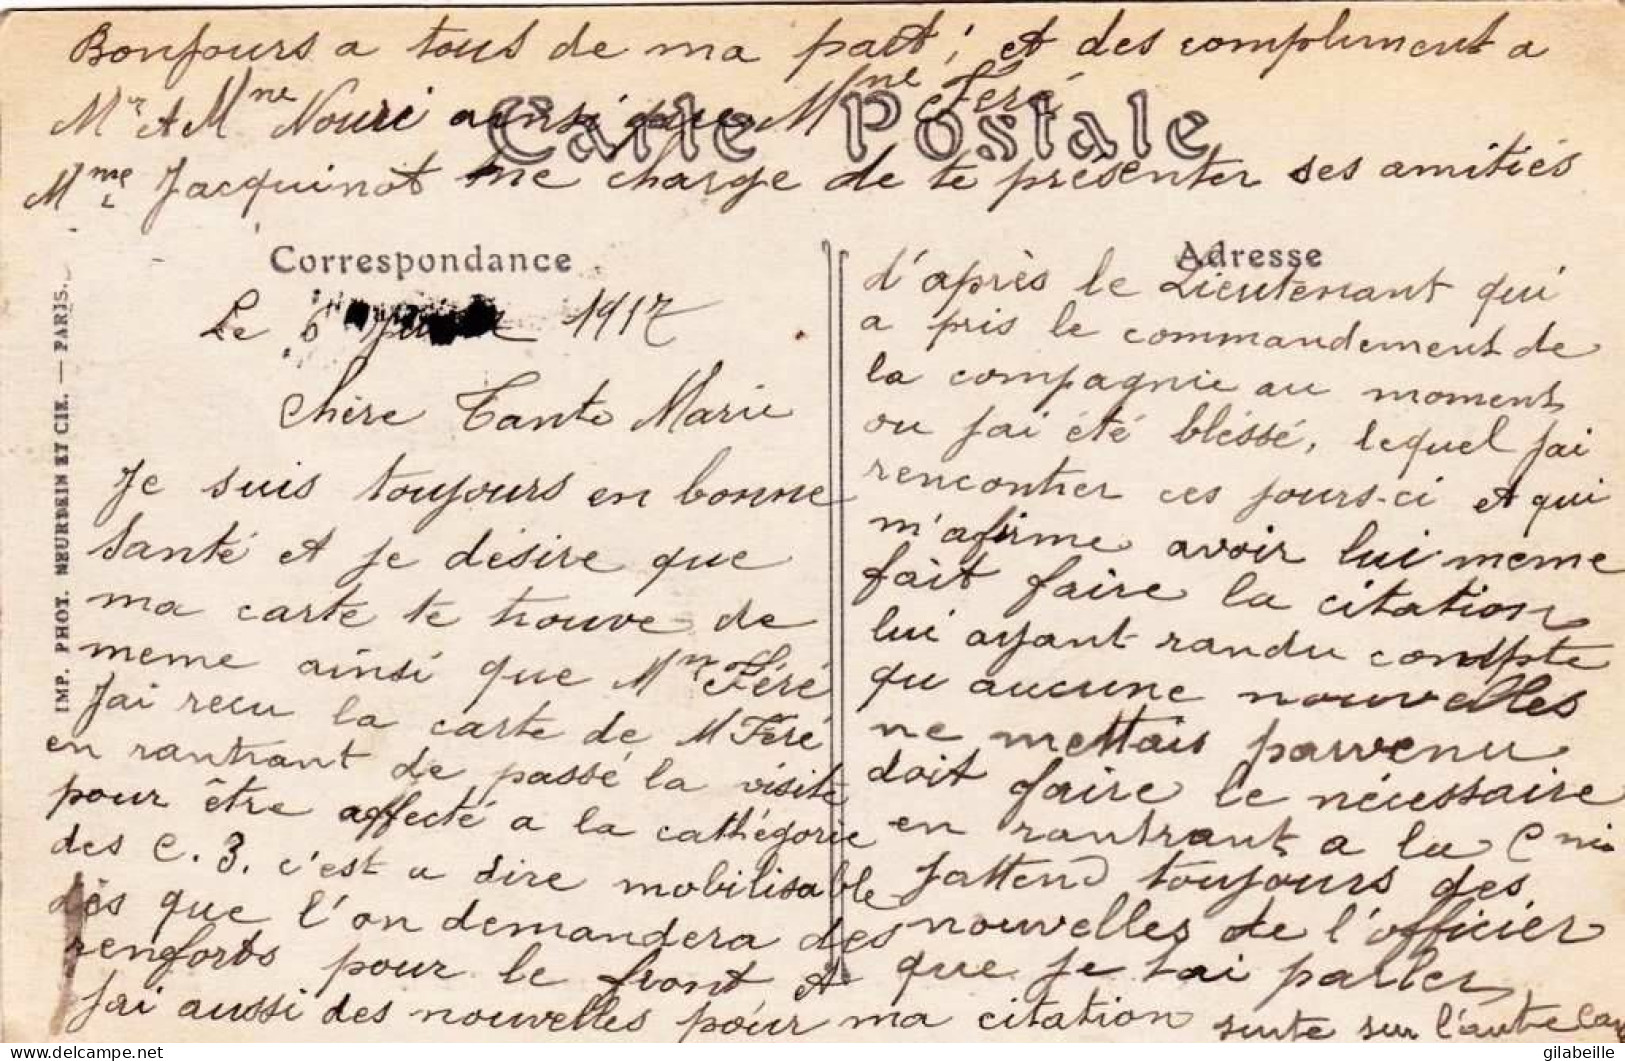 Bonjours a tous de ma part ; et des compliment a
Mr et Mme Nouri ainsi que Mme Féré
Carte Postale
Mme Jacquinot me charge de te présenter ses amitiés
Correspondance
Le 6 1917
Chère Tante Marie
Je suis toujours en bonne
santé et je désire que
ma carte te trouve de
meme ainsi que Mme Féré
J'ai reçu la carte de M Féré
en rantrant de passé la visite
pour être affecté a la cathégorie
des C. 3. c'est a dire mobilisable
dès que l'on demandera des
renforts pour le front et
j'ai aussi des nouvelles pour ma citation
Adresse
d'après le Lieutenant qui
a pris le commandement de
la compagnie au moment
ou jai été bléssé, lequel jai
rencontrer ces jours-ci et qui
m'afirme avoir lui meme
fait faire la citation
lui ayant randu compte
qu aucune nouvelles
ne mettais parvenu
doit faire le nécessaire
en rantrant a la Cnie
jattend toujours des
nouvelles de l'officier
que je tai parler
suite sur l'autre Car
IMP. PHOT. NEURDEIN ET CIE. — PARIS.
gilabeille